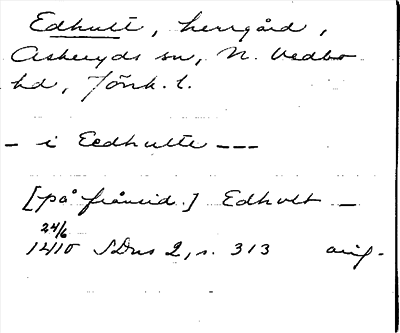 Edhult, herrgård,
Askeryds sn, N. Vedbo
hd, Jönk. l.
– i Eedhulte ---
[på frånsid.] Edholt –
24/6
1410 SDns 2, s. 313 avig.